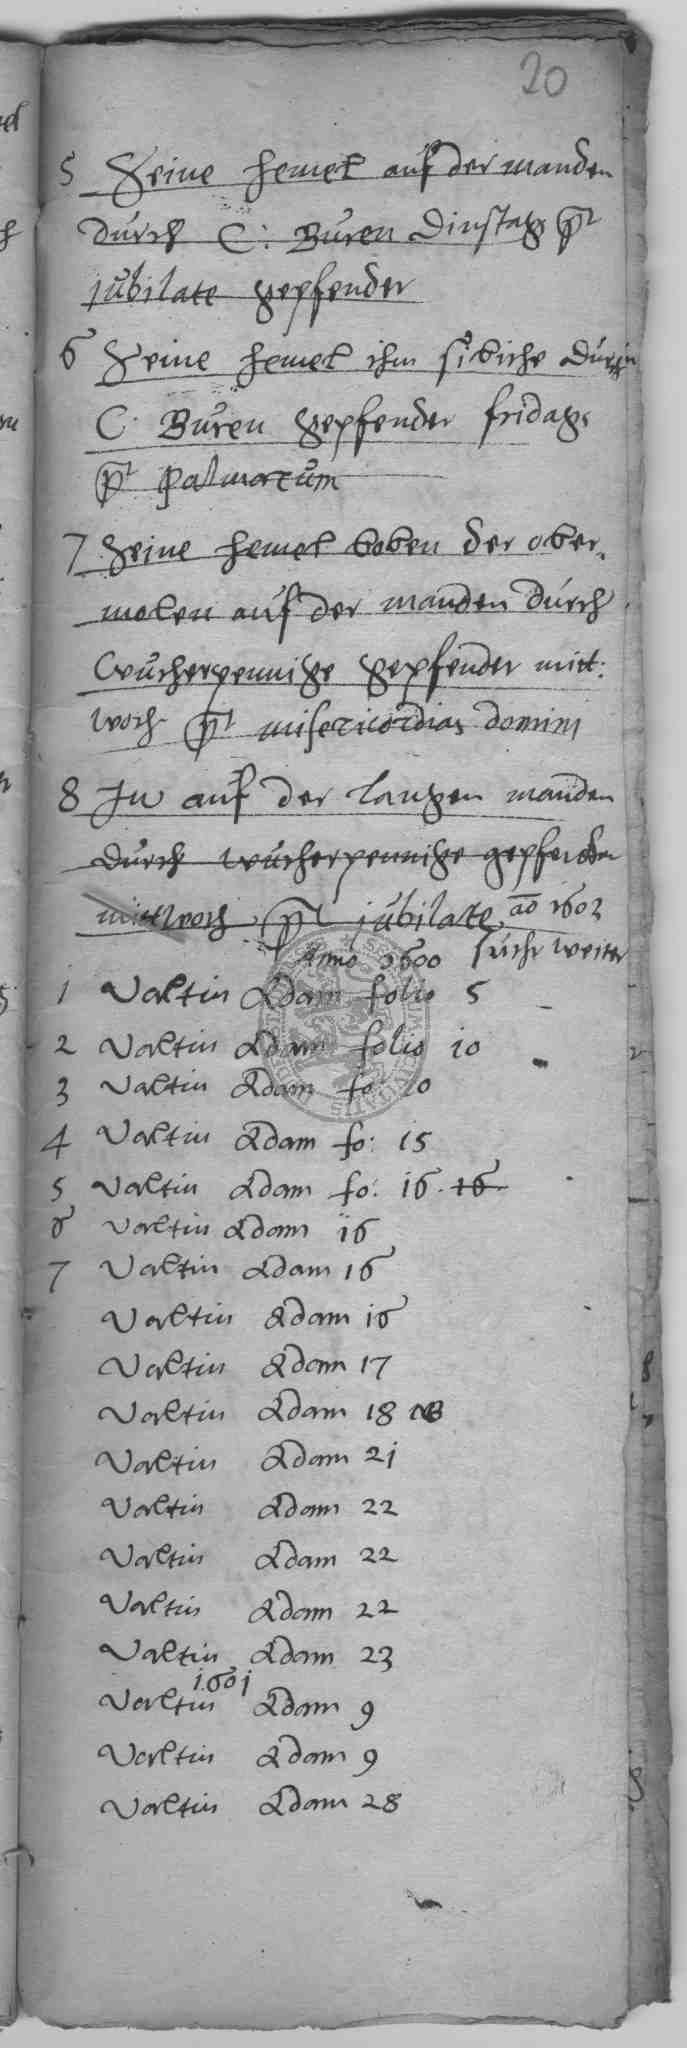 20
5 Seine hemel auf der manden
durch C: Buren Dinstag pt
jubilate gepfender
6 Seine hemel ihm sikiche durch
C. Buren gepfender fridags
pt palmarum
7 Seine hemel boben der ober,
molen auf der manden durch
Wucherpennige gepfender mitt:
woch pt misericordias domini
8 In auf der langen manden
durch wucherpennige gepfender
mittwoch pt jubilate ao 1602
Anno 1600 suche weiter
1 Valtin Adam folio 5
2 Valtin Adam folio 10
3 Valtin Adam fo 10
4 Valtin Adam fo: 15
5 Valtin Adam fo: 16. 16.
6 Valtin Adam 16
7 Valtin Adam 16
Valtin Adam 16
Valtin Adam 17
Valtin Adam 18 NB
Valtin Adam 21
Valtin Adam 22
Valtin Adam 22
Valtin Adam 22
Valtin Adam 23
1601
Valtin Adam 9
Valtin Adam 9
Valtin Adam 28